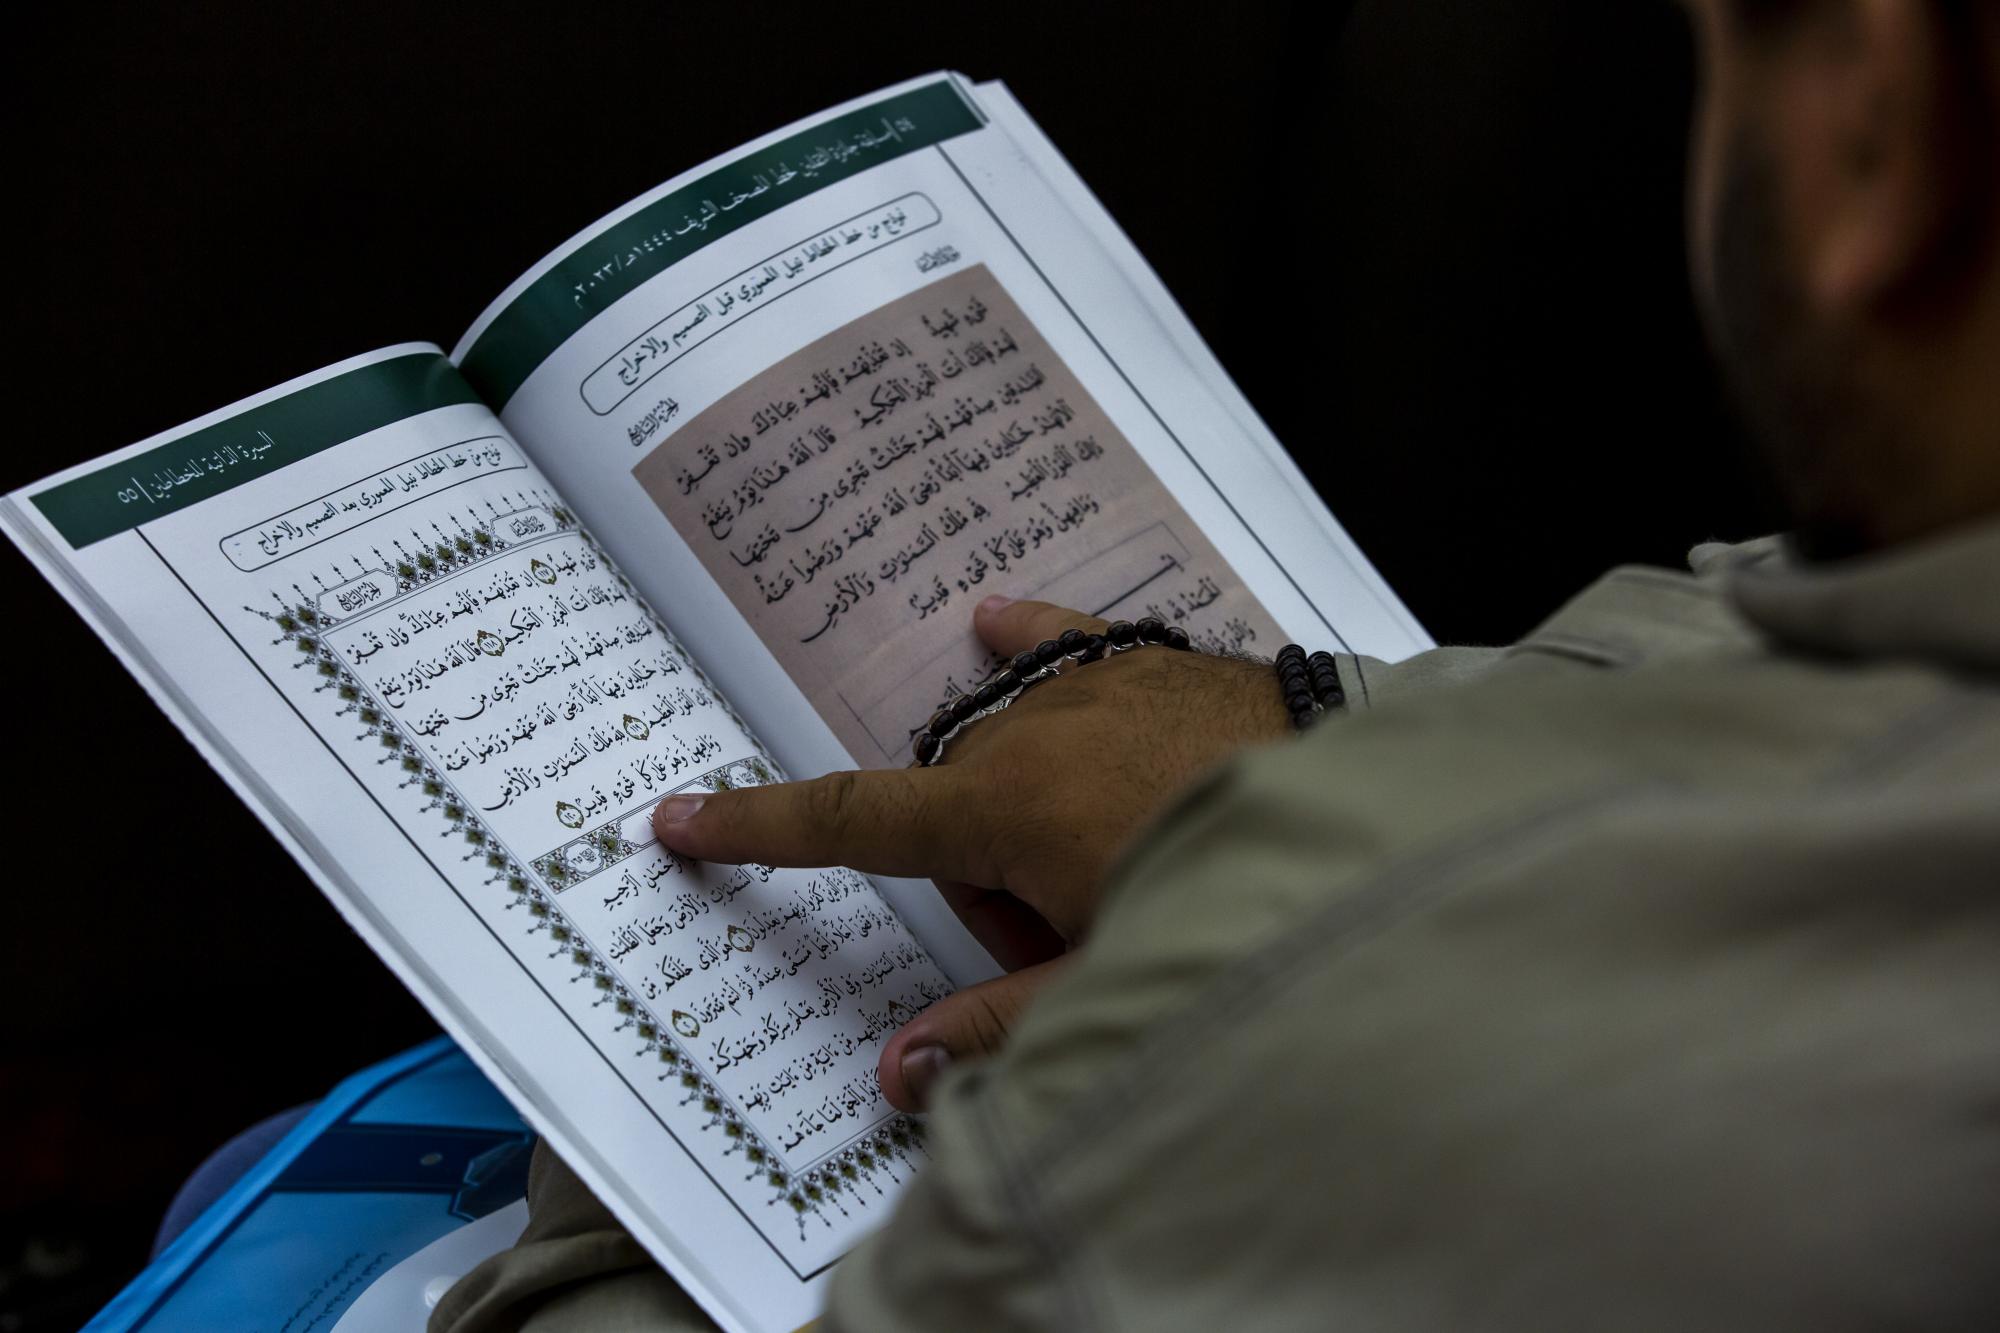 ٥٤ | مسابقة جائزة الثقلين لخط المصحف الشريف ١٤٤٤هـ/٢٠٢٣م
نموذج من خط الخطاط نبيل المعموري قبل التصميم والإخراج
سورة المائدة
الجزء السابع
شَىْءٍ شَهِيدٌ إِن تُعَذِّبْهُمْ فَإِنَّهُمْ عِبَادُكَ وَإِن تَغْفِرْ
لَهُمْ فَإِنَّكَ أَنتَ الْعَزِيزُ الْحَكِيمُ قَالَ اللَّهُ هَٰذَا يَوْمُ يَنفَعُ
الصَّادِقِينَ صِدْقُهُمْ لَهُمْ جَنَّٰتٌ تَجْرِى مِن تَحْتِهَا
الْأَنْهَٰرُ خَٰلِدِينَ فِيهَآ أَبَدًا رَّضِىَ اللَّهُ عَنْهُمْ وَرَضُوا عَنْهُ
ذَٰلِكَ الْفَوْزُ الْعَظِيمُ لِلَّهِ مُلْكُ السَّمَٰوَٰتِ وَالْأَرْضِ
وَمَا فِيهِنَّ وَهُوَ عَلَىٰ كُلِّ شَىْءٍ قَدِيرٌ
الْحَمْدُ لِلَّهِ
السيرة الذاتية للخطاطين | ٥٥
نموذج من خط الخطاط نبيل المعموري بعد التصميم والإخراج
سورة المائدة
الجزء السابع
شَىْءٍ شَهِيدٌ ١١٧ إِن تُعَذِّبْهُمْ فَإِنَّهُمْ عِبَادُكَ وَإِن تَغْفِرْ
لَهُمْ فَإِنَّكَ أَنتَ الْعَزِيزُ الْحَكِيمُ ١١٨ قَالَ اللَّهُ هَٰذَا يَوْمُ يَنفَعُ
الصَّادِقِينَ صِدْقُهُمْ لَهُمْ جَنَّٰتٌ تَجْرِى مِن تَحْتِهَا
الْأَنْهَٰرُ خَٰلِدِينَ فِيهَآ أَبَدًا رَّضِىَ اللَّهُ عَنْهُمْ وَرَضُوا عَنْهُ
ذَٰلِكَ الْفَوْزُ الْعَظِيمُ ١١٩ لِلَّهِ مُلْكُ السَّمَٰوَٰتِ وَالْأَرْضِ
وَمَا فِيهِنَّ وَهُوَ عَلَىٰ كُلِّ شَىْءٍ قَدِيرٌ ١٢٠
الرَّحْمَٰنِ الرَّحِيمِ
خَلَقَ السَّمَٰوَٰتِ وَالْأَرْضَ وَجَعَلَ الظُّلُمَٰتِ
الَّذِينَ كَفَرُوا بِرَبِّهِمْ يَعْدِلُونَ ١ هُوَ الَّذِى خَلَقَكُم مِّن
ثُمَّ قَضَىٰ أَجَلًا وَأَجَلٌ مُّسَمًّى عِندَهُ ثُمَّ أَنتُمْ تَمْتَرُونَ ٢
وَهُوَ اللَّهُ فِى السَّمَٰوَٰتِ وَفِى الْأَرْضِ يَعْلَمُ سِرَّكُمْ وَجَهْرَكُمْ
تَكْسِبُونَ ٣ وَمَا تَأْتِيهِم مِّنْ ءَايَةٍ مِّنْ ءَايَٰتِ رَبِّهِمْ
كَذَّبُوا بِالْحَقِّ لَمَّا جَآءَهُمْ